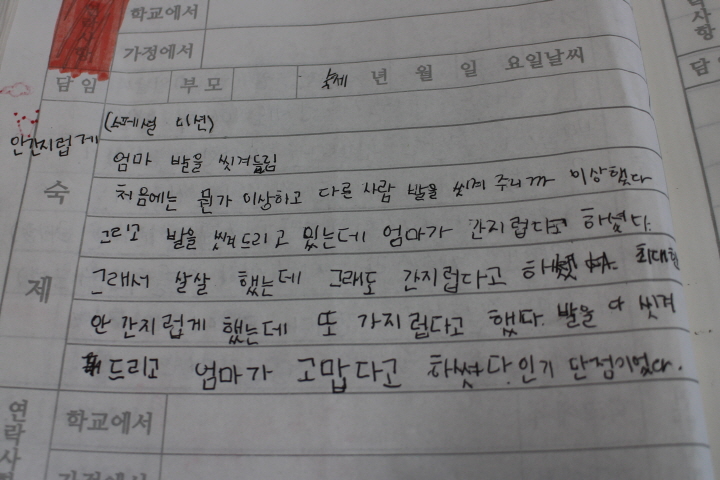 학교에서
사항
가정에서
담임 부모 숙제 년 월 일 요일 날씨
담
안간지럽게 (스페셜 미션)
엄마 발을 씻겨드림
처음에는 뭔가 이상하고 다른 사람 발을 씻겨 주니까 이상했다
그리고 발을 씻겨드리고 있는데 엄마가 간지럽다고 하셨다.
그래서 살살 했는데 그래도 간지럽다고 최대한
안 간지럽게 했는데 또 가지럽다고 했다. 발을 다 씻겨
드리고 엄마가 고맙다고 하셨다. 인기 단정이었다.
숙제
연락사
학교에서
가정에서